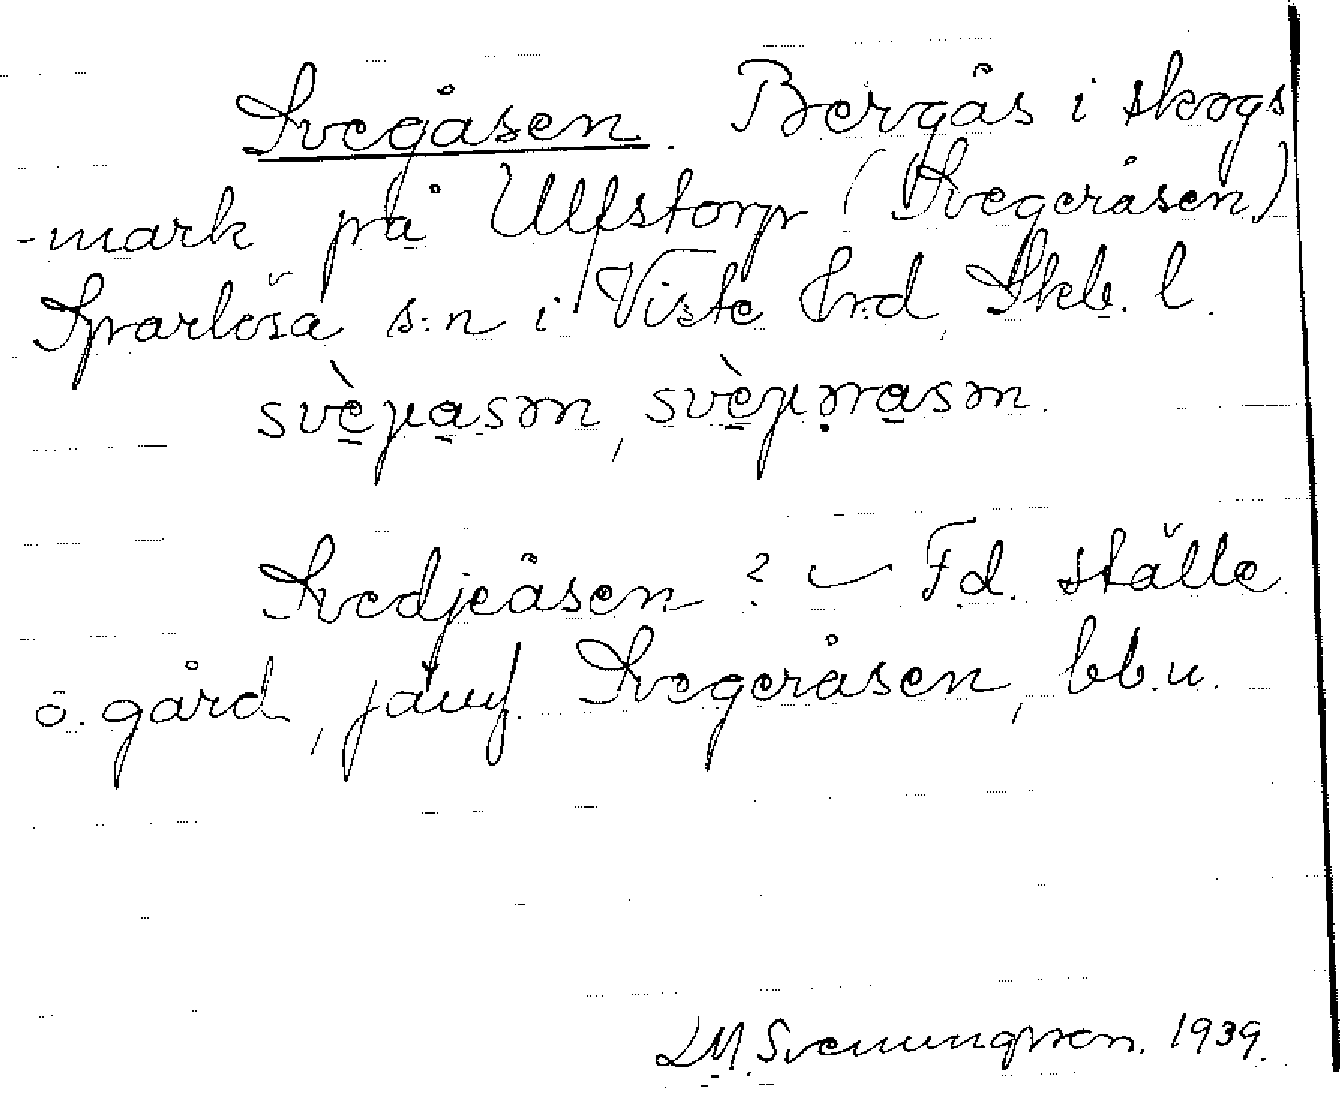 Svegåsen. Bergås i skogs
-mark på Ulfstorp (Svegeråsen)
Sparlösa s:n i Viste Hrd, Skb. l.
Svedjeåsen? Fd. ställe
o. gård, jämf. Svegeråsen, bb.u.
LM. Svenungsson. 1939.